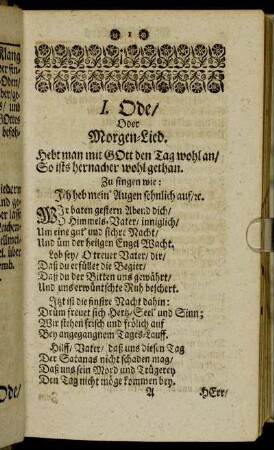 1
I. Ode/
Oder
Morgen-Lied.
Hebt man mit GOtt den Tag wohl an/
So ists hernacher wohl gethan.
Zu singen wie:
Jch heb mein' Augen sehnlich auf/ꝛc.
WJr baten gestern Abend dich/
Himmels-Vater/ inniglich/
Um eine gut' und sichre Nacht/
Und üm der heilgen Engel Wacht.
Lob sey/ O treuer Vater/ dir/
Daß du erfüllet die Begier/
Daß du der Bitten uns gewährt/
Und uns erwüntschte Ruh beschert.
Jtzt ist die finstre Nacht dahin:
Drüm freuet sich Hertz/ Seel' und Sinn;
Wir stehen frisch und frölich auf
Bey angegangnem Tages-Lauff.
Hilff/ Vater/ daß uns diesen Tag
Der Satanas nicht schaden mag/
Daß uns sein Mord und Trügerey
Den Tag nicht möge kommen bey.
A HErr/